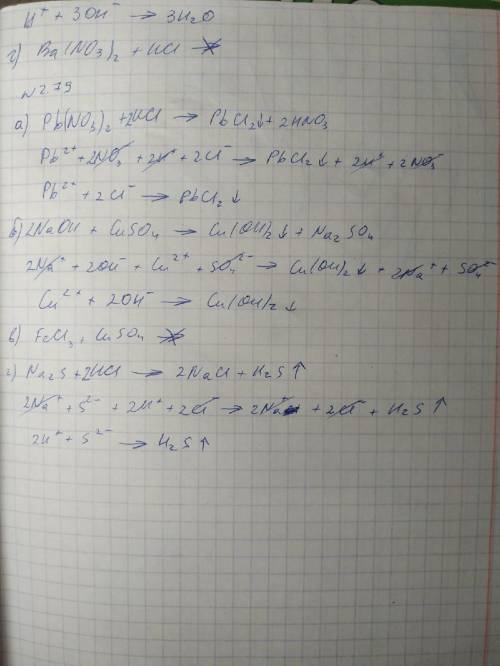 H⁺ + 3OH⁻ → 3H₂O
г) Ba(NO₃)₂ + HCl ↛
№2.79
а) Pb(NO₃)₂ + 2HCl → PbCl₂↓ + 2HNO₃
Pb²⁺ + 2NO₃⁻ + 2H⁺ + 2Cl⁻ → PbCl₂↓ + 2H⁺ + 2NO₃⁻
Pb²⁺ + 2Cl⁻ → PbCl₂↓
б) 2NaOH + CuSO₄ → Cu(OH)₂↓ + Na₂SO₄
2Na⁺ + 2OH⁻ + Cu²⁺ + SO₄²⁻ → Cu(OH)₂↓ + 2Na⁺ + SO₄²⁻
Cu²⁺ + 2OH⁻ → Cu(OH)₂↓
в) FeCl₃ + CuSO₄ ↛
г) Na₂S + 2HCl → 2NaCl + H₂S↑
2Na⁺ + S²⁻ + 2H⁺ + 2Cl⁻ → 2Na⁺ + 2Cl⁻ + H₂S↑
2H⁺ + S²⁻ → H₂S↑